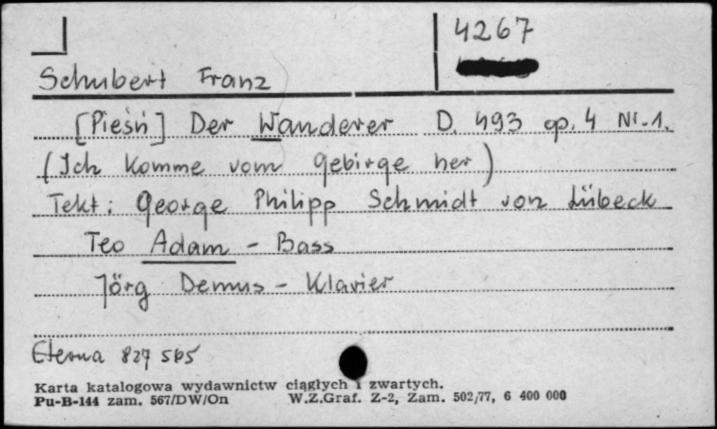 4267
Schubert Franz
[Pieśń] Der Wanderer D. 493 op. 4 Nr. 1.
(Ich komme vom Gebirge her)
Tekt: George Philipp Schmidt von Lübeck
Teo Adam - Bass
Jörg Demus - Klavier
Eterna 827 565
Karta katalogowa wydawnictw ciągłych i zwartych.
Pu-B-144 zam. 567/DW/On W.Z.Graf. Z-2, Zam. 502/77, 6 400 000